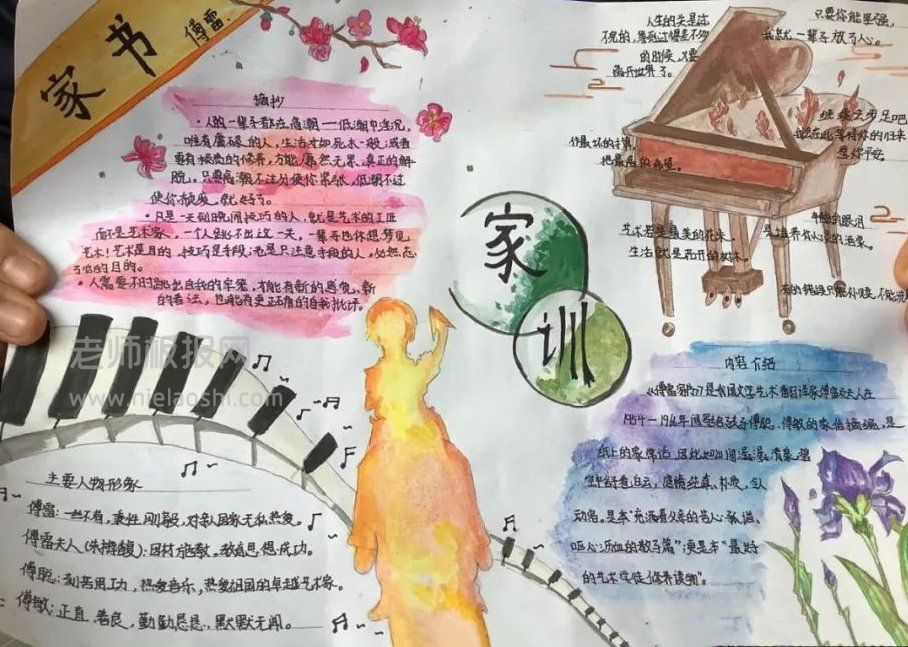 家书
傅雷
摘抄
•人的一辈子都在高潮——低潮中浮沉,
唯有庸碌的人,生活才如死水一般;或者
要有极高的修养,方能廓然无累,真正的解
脱。只要高潮不过分使你紧张,低潮不过
使你颓废,就好了。
•凡是一天到晚闹技巧的人,就是艺术的工匠
而不是艺术家,一个人跳不出这一关,一辈子也休想梦见
艺术!艺术是目的,技巧是手段,老是只注意手段的人,必然忘
了他的目的。
•人需要不时跳出自我的牢笼,才能有新的感觉,新
的看法,也能有更正确的自我批评。
人生的关是过
不完的,等到过得差不多
的时候,又要
离开世界了。
只要你能坚强,
我就一辈子放了心。
继续大步走吧
作最坏的打算,
抱最高的希望。
艺术若是最美的花朵,
生活就是开花的树木。
辛酸的眼泪
是培养你心灵的酒浆。
家
训
老师板报网
www.nielaoshi.com
主要人物形象
傅雷:一丝不苟,秉性刚毅,对亲人国家无私热爱。
傅雷夫人(朱梅馥):因材施教,教育思想成功。
傅聪:刻苦用功,热爱音乐,热爱祖国的卓越艺术家。
傅敏:正直、善良,勤勤恳恳、默默无闻。
内容介绍
《傅雷家书》是我国文学艺术翻译家傅雷及夫人在
1954—1966年间写给孩子傅聪、傅敏的家信摘编,是
纸上的家常话,
动容,是本"充满着父爱的苦心孤诣、
呕心沥血的教子篇"更是本"最好
的艺术学徒修养读物"。